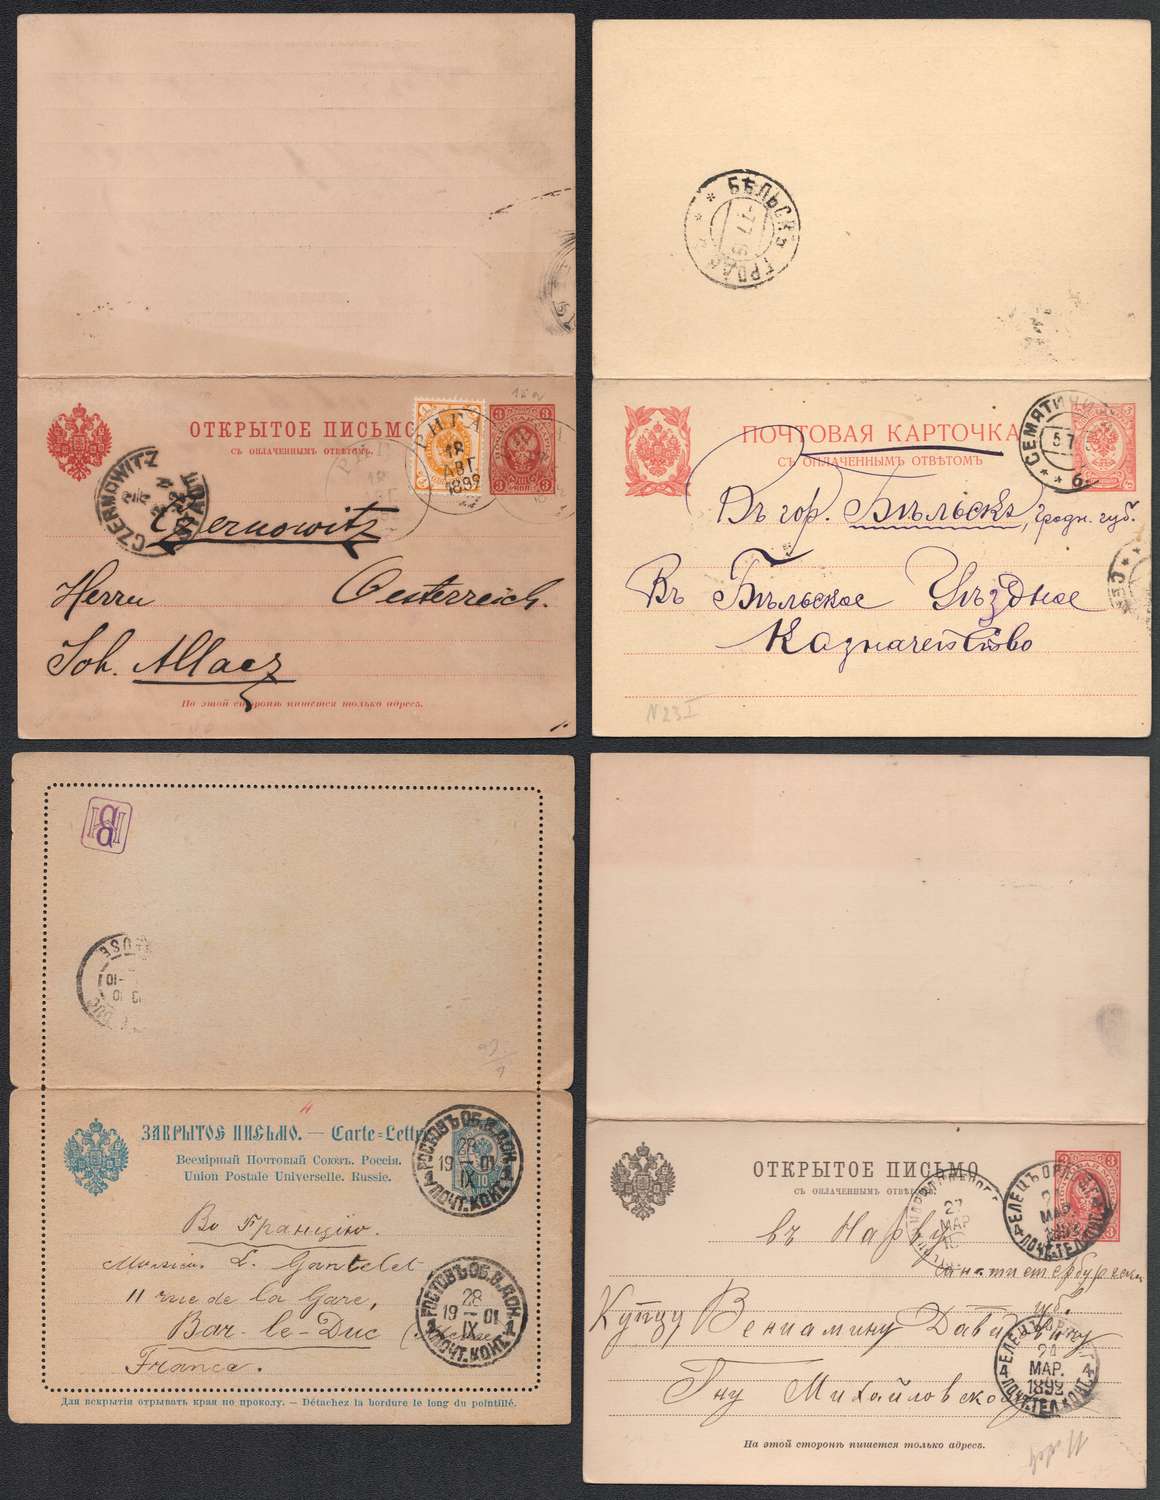 ОТКРЫТОЕ ПИСЬМО
СЪ ОПЛАЧЕННЫМЪ ОТВѢТОМЪ.
3 3
РИГА
18
АВГ
1899
CZERNOWITZ
Czernowitz
Herrn Oesterreich.
Joh. Allacz
На этой сторонѣ пишется только адресъ.
БѢЛЬСКЪ ГРОДН.
ПОЧТОВАЯ КАРТОЧКА
СЪ ОПЛАЧЕННЫМЪ ОТВѢТОМЪ
СЕМЯТИЧИ
Въ гор. Бѣльскъ, Гродн. губ.
Въ Бѣльское Уѣздное
Казначейство
N 23 I
ЗАКРЫТОЕ ПИСЬМО. — Carte-Lettre
Всемірный Почтовый Союзъ. Россія.
Union Postale Universelle. Russie.
РОСТОВЪ ОБ. В. ДОН.
28
19 — 01
IX
ПОЧТ. КОНТ.
Во Францію.
Monsieur L. Gantelet
11 rue de la Gare,
Bar-le-Duc
France.
РОСТОВЪ ОБ. В. ДОН.
28
19 — 01
IX
4 ПОЧТ. КОНТ. 4
Для вскрытія отрывать края по проколу. — Détachez la bordure le long du pointillé.
ОТКРЫТОЕ ПИСЬМО
СЪ ОПЛАЧЕННЫМЪ ОТВѢТОМЪ.
3 3
27
МАР
ЕЛЕЦЪ ОРЛ. Г.
МАР.
ПОЧТ. ТЕЛ. КОНТ.
въ Нарву
Санктпетербургск
губ.
Купцу Вениамину Давидовичу
Гну Михайловскому
ЕЛЕЦЪ ОРЛ. Г.
24
МАР.
1899
4 ПОЧТ. ТЕЛ. КОНТ. 4
На этой сторонѣ пишется только адресъ.